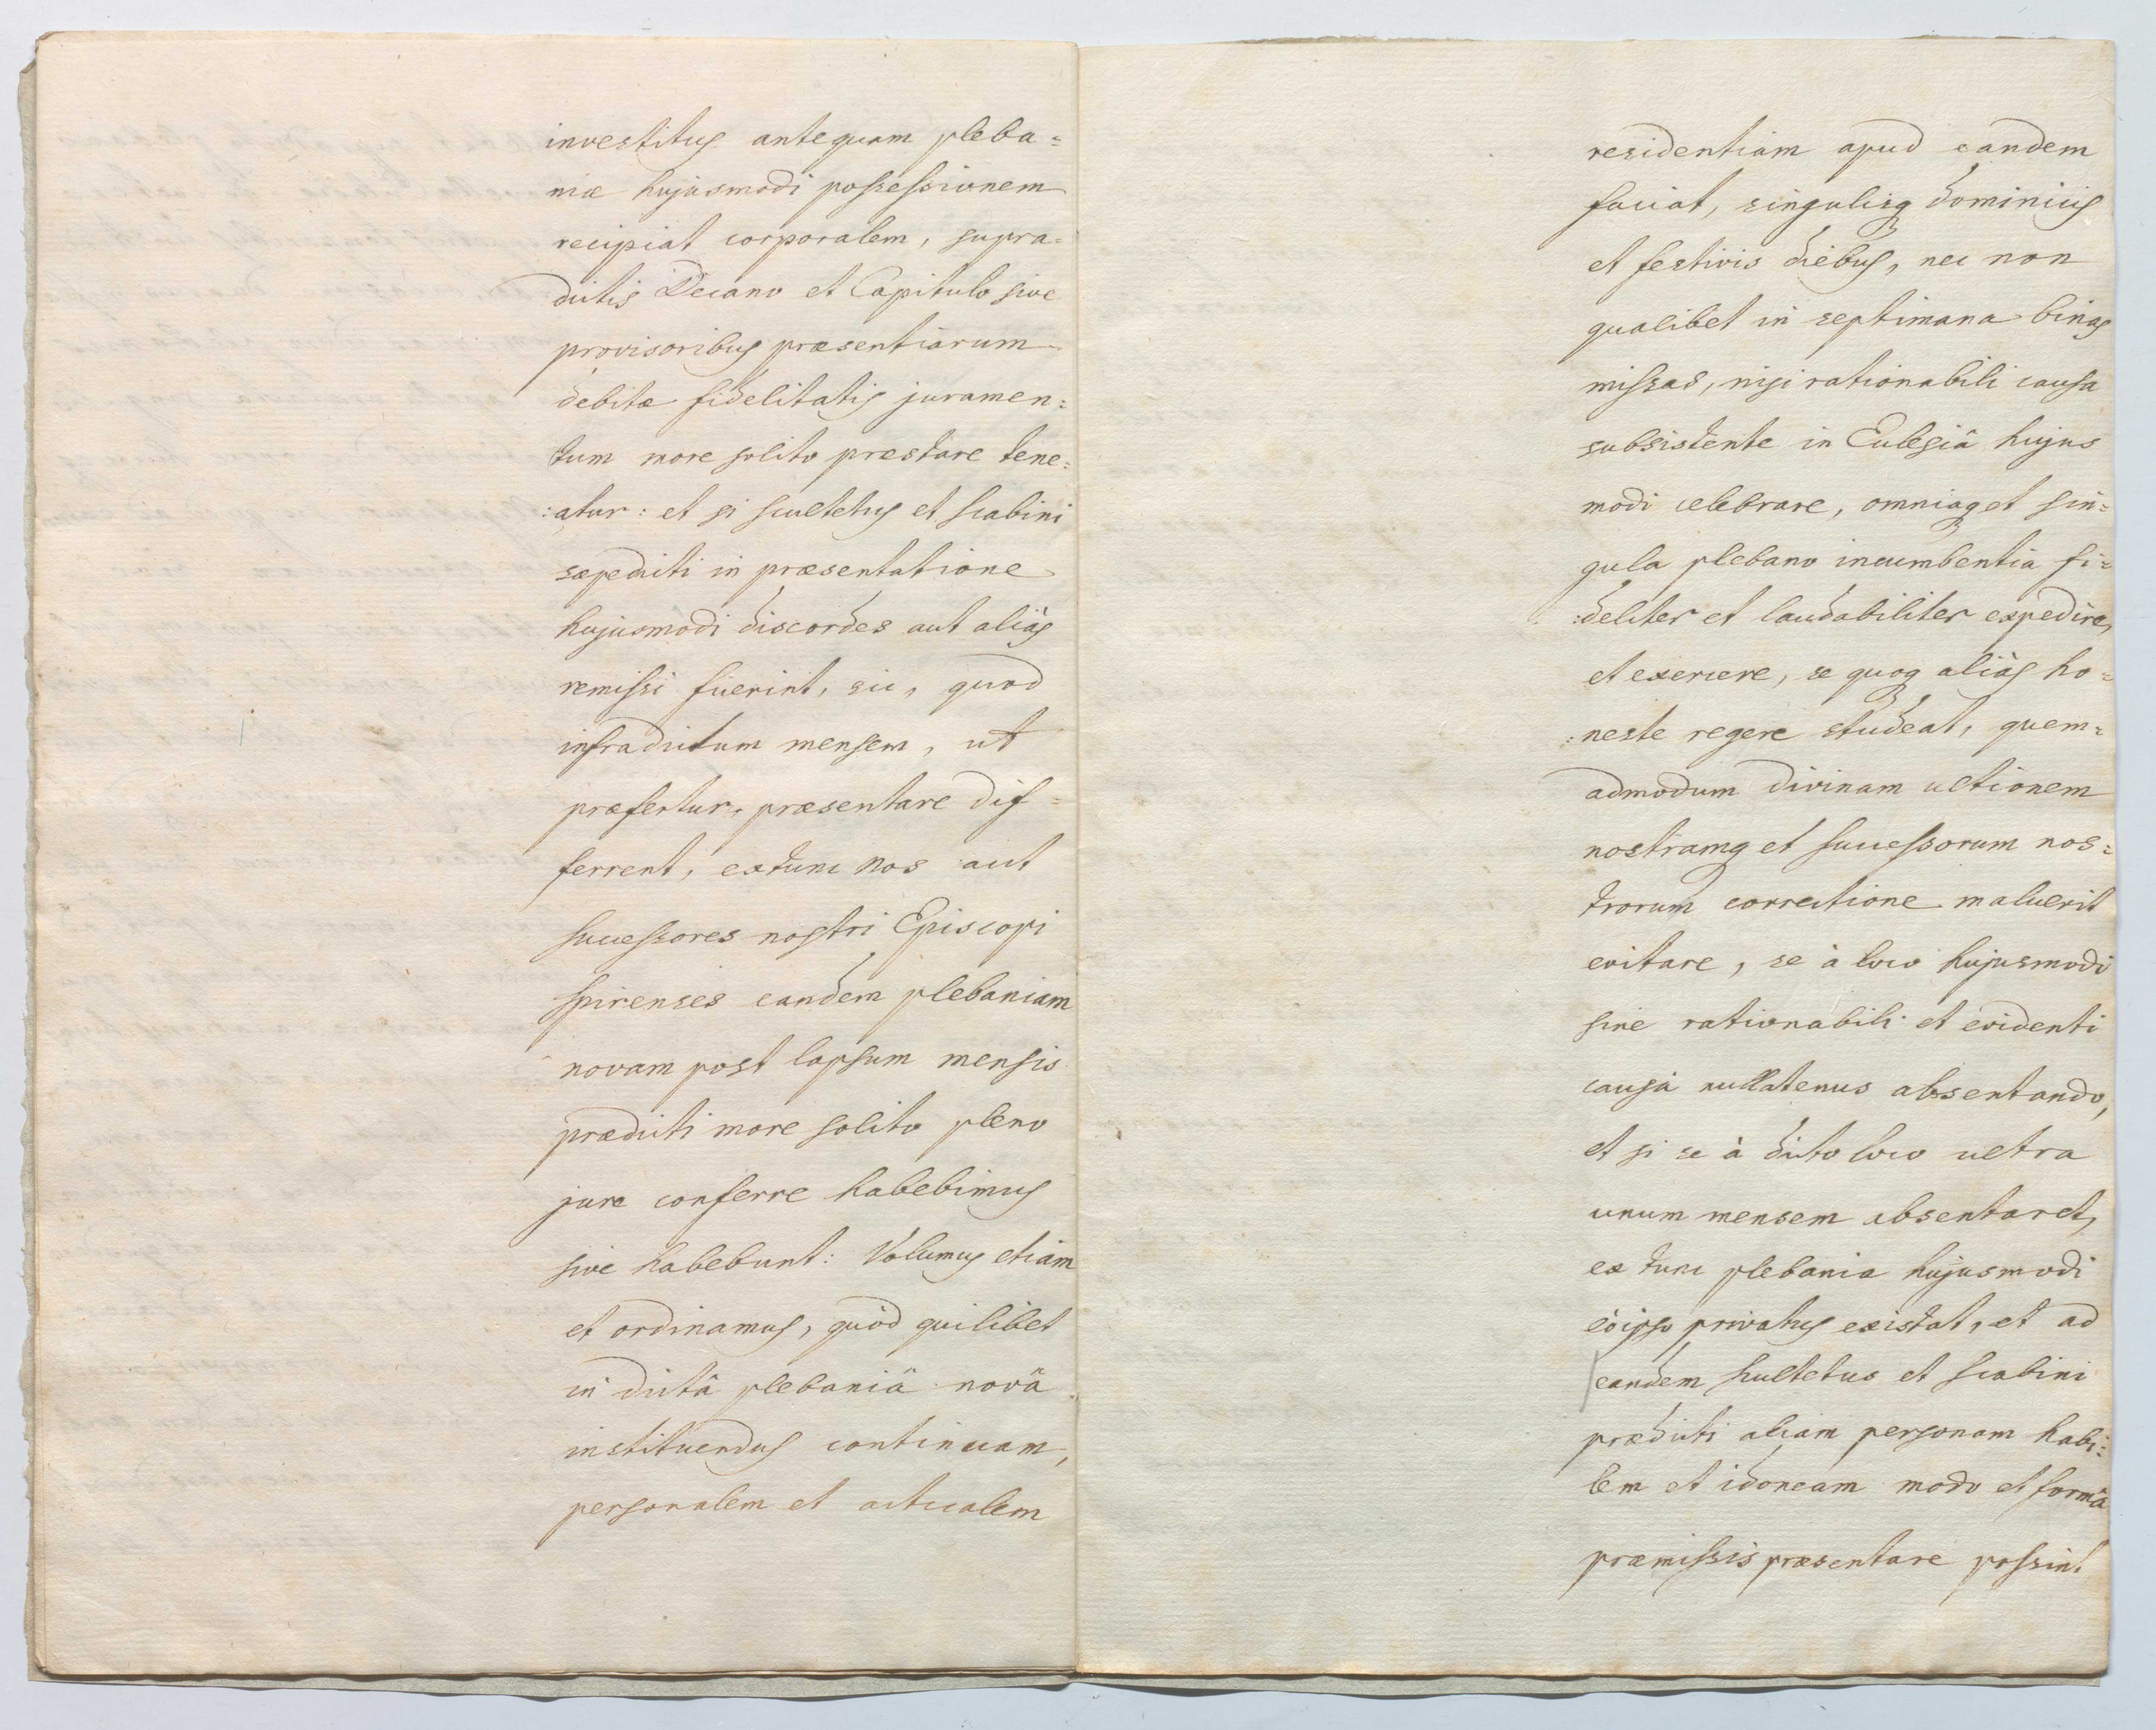 investitus antequam pleba=
niæ hujusmodi possessionem
recipiat corporalem, supra=
dictis Decano et Capitulo sive
provisoribus præsentiarum
debitæ fidelitatis juramen=
tum more solito præstare tene=
:atur: et si scultetus et scabini
sæpedicti in præsentatione
hujusmodi discordes aut aliàs
remissi fuerint, sic, quod
infradictum mensem, ut
præfertur, præsentare dif=
ferrent, extunc nos aut
successores nostri Episcopi
spirenses eandem plebaniam
novam post lapsum mensis
prædicti more solito pleno
jure conferre habebimus
sive habebunt: Volumus etiam
et ordinamus, quòd quilibet
in dictâ plebaniâ novâ
instituendus continuam,
personalem et actualem
residentiam apud eandem
faciat, singulisq dominicis
et festivis diebus, nec non
qualibet in septimana binas
missas, nisi rationabili causa
subsistente in Ecclesiâ hujus
modi celebrare, omniaq et sin=
gula plebano incumbentia fi=
:deliter et laudabiliter expedire,
et exercere, se quoq aliàs ho=
:neste regere studeat, quem=
admodum divinam ultionem
nostramq et successorum nos=
trorum correctione maluerit
evitare, se à loco hujusmodi
sine rationabili et evidenti
causà nullatenus absentando,
et si se à dicto loco ultra
unum mensem absentaret,
ex tunc plebania hujusmodi
eòipso privatus existat, et ad
eandem scultetus et scabini
prædicti aliam personam habi=
lem et idoneam modo et formâ
præmissis præsentare possint